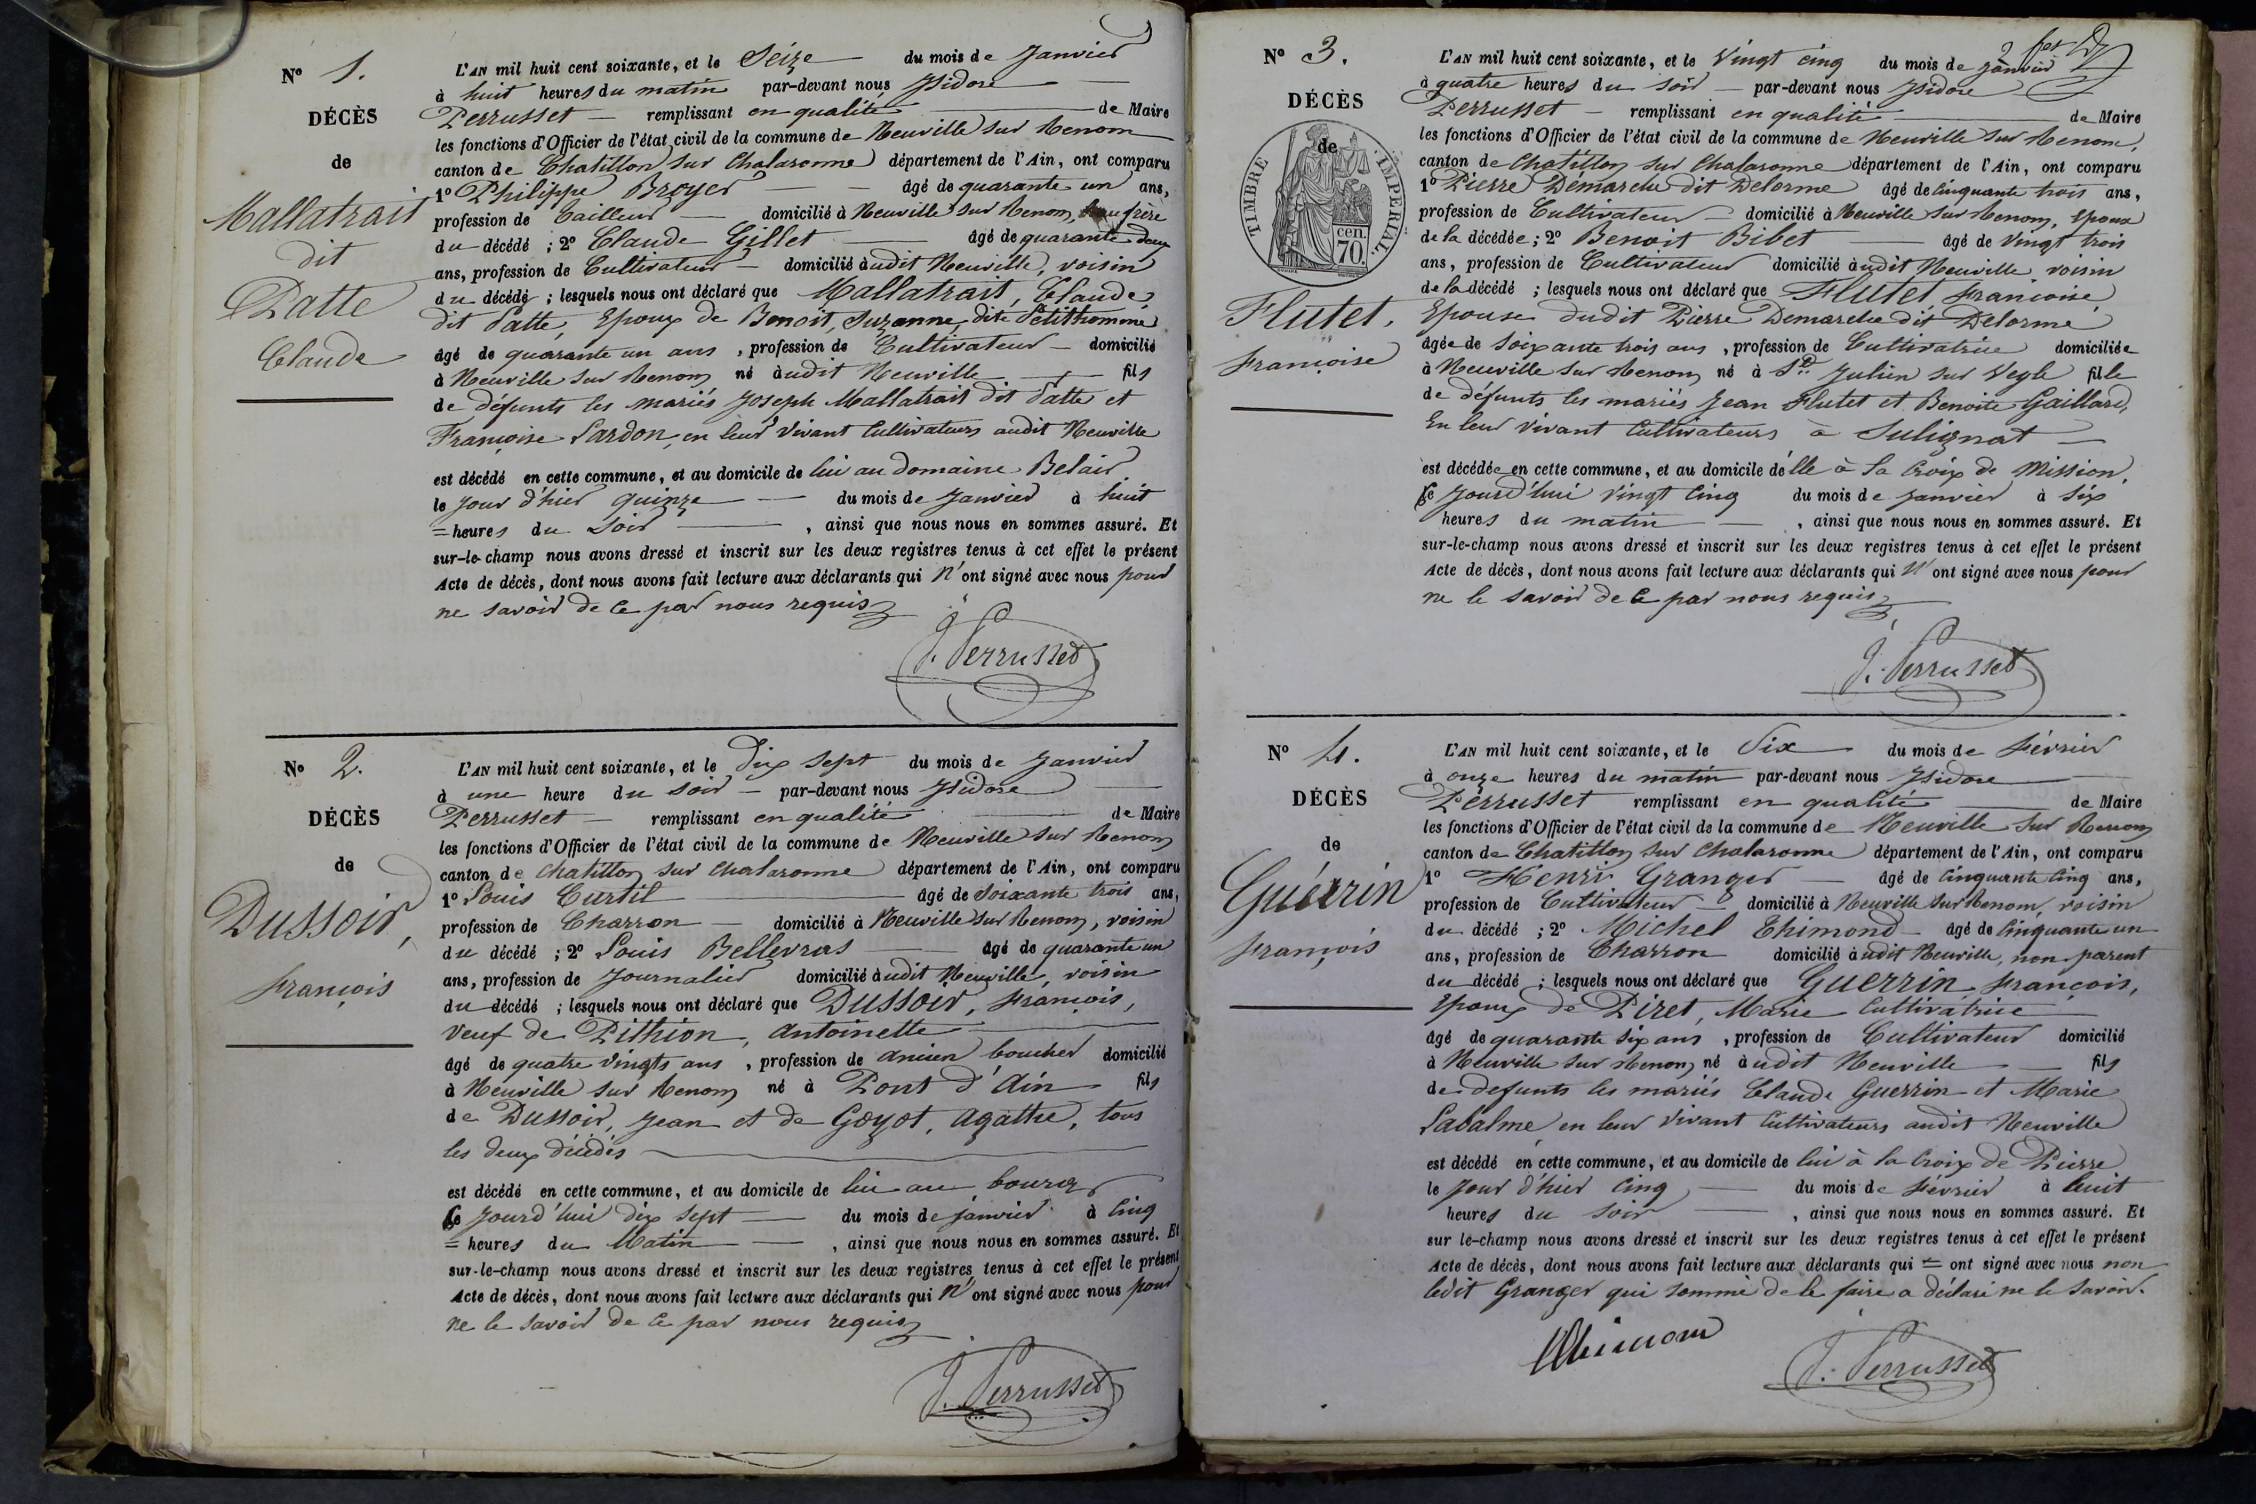 N° 1.
DÉCÈS
de
Mallatrait
dit
Patte
Claude
L'AN mil huit cent soixante, et le Seize du mois de Janvier
à huit heures du matin par-devant nous Isidore
Perrusset remplissant en qualité de Maire
les fonctions d'Officier de l'état civil de la commune de Neuville sur Renom
canton de Chatillon sur Chalaronne département de l'Ain, ont comparu
1° Philippe Broyer âgé de quarante un ans,
profession de Tailleur domicilié à Neuville sur Renom, beau frère
du décédé ; 2° Claude Gillet âgé de quarante deux
ans, profession de Cultivateur domicilié audit Neuville, voisin
du décédé ; lesquels nous ont déclaré que Mallatrait, Claude,
dit Patte, Epoux de Benoit, Suzanne, dite Petithomme
âgé de quarante un ans , profession de Cultivateur domicilié
à Neuville sur Renom né audit Neuville fils
de défunts les mariés Joseph Mallatrait dit Patte et
Françoise Pardon, en leur vivant Cultivateurs audit Neuville
est décédé en cette commune, et au domicile de lui au domaine Belair
le jour d'hier quinze du mois de Janvier à huit
= heures du Soir , ainsi que nous nous en sommes assuré. Et
sur-le-champ nous avons dressé et inscrit sur les deux registres tenus à cet effet le présent
Acte de décès, dont nous avons fait lecture aux déclarants qui n'ont signé avec nous pour
ne savoir de ce par nous requis
J. Perrusset
N° 2.
DÉCÈS
de
Dussoir,
François
L'AN mil huit cent soixante, et le Dix sept du mois de Janvier
à une heure du soir par-devant nous Isidore
Perrusset remplissant en qualité de Maire
les fonctions d'Officier de l'état civil de la commune de Neuville sur Renom
canton de Chatillon sur Chalaronne département de l'Ain, ont comparu
1° Louis Curtil âgé de Soixante trois ans,
profession de Charron domicilié à Neuville sur Renom, voisin
du décédé ; 2° Louis Bellevras âgé de quarante un
ans, profession de Journalier domicilié audit Neuville, voisin
du décédé ; lesquels nous ont déclaré que Dussoir, François,
veuf de Pithion, Antoinette
âgé de quatre vingts ans , profession de ancien boucher domicilié
à Neuville sur Renom né à Pont d'Ain fils
de Dussoir, Jean et de Goyot, Agathe, tous
les deux décédés
est décédé en cette commune, et au domicile de lui au bourg
ce jourd'hui dix sept du mois de janvier à cinq
= heures du Matin , ainsi que nous nous en sommes assuré. Et
sur-le-champ nous avons dressé et inscrit sur les deux registres tenus à cet effet le présent
Acte de décès, dont nous avons fait lecture aux déclarants qui n'ont signé avec nous pour
ne le savoir de ce par nous requis
J. Perrusset
N° 3.
DÉCÈS
de
TIMBRE IMPERIAL
70 cen.
Flutet,
Françoise
L'AN mil huit cent soixante, et le vingt cinq du mois de Janvier
à quatre heures du soir par-devant nous Isidore
Perrusset remplissant en qualité de Maire
les fonctions d'Officier de l'état civil de la commune de Neuville sur Renom,
canton de Chatillon sur Chalaronne département de l'Ain, ont comparu
1° Pierre Demarche dit Delorme âgé de cinquante trois ans,
profession de Cultivateur domicilié à Neuville sur Renom, Epoux
de la décédée ; 2° Benoit Bibet âgé de vingt trois
ans, profession de Cultivateur domicilié audit Neuville voisin
de la décédé ; lesquels nous ont déclaré que Flutet, Françoise
Epouse dudit Pierre Demarche dit Delorme
âgée de Soixante trois ans , profession de Cultivatrice domiciliée
à Neuville sur Renom né à St Julien sur Veyle fille
de défunts les mariés Jean Flutet et Benoite Gaillard,
En leur vivant Cultivateurs à Sulignat
est décédée en cette commune, et au domicile d'elle à la Croix de Mission,
ce jourd'hui vingt cinq du mois de janvier à six
heures du matin , ainsi que nous nous en sommes assuré. Et
sur-le-champ nous avons dressé et inscrit sur les deux registres tenus à cet effet le présent
Acte de décès, dont nous avons fait lecture aux déclarants qui n'ont signé avec nous pour
ne le savoir de ce par nous requis
J. Perrusset
N° 4.
DÉCÈS
de
Guérrin
François
L'AN mil huit cent soixante, et le Six du mois de Février
à onze heures du matin par-devant nous Isidore
Perrusset remplissant en qualité de Maire
les fonctions d'Officier de l'état civil de la commune de Neuville sur Renom
canton de Chatillon sur Chalaronne département de l'Ain, ont comparu
1° Henri Granger âgé de cinquante cinq ans,
profession de Cultivateur domicilié à Neuville sur Renom, voisin
du décédé ; 2° Michel Thimond âgé de cinquante un
ans, profession de Charron domicilié audit Neuville, non parent
du décédé ; lesquels nous ont déclaré que Guerrin François,
Epoux de Piret, Marie Cultivatrice
âgé de quarante six ans , profession de Cultivateur domicilié
à Neuville sur Renom né audit Neuville fils
de defunts les mariés Claude Guerrin et Marie
Labalme en leur vivant Cultivateurs audit Neuville
est décédé en cette commune, et au domicile de lui à la Croix de Pierre
le jour d'hier cinq du mois de Février à huit
heures du soir , ainsi que nous nous en sommes assuré. Et
sur le-champ nous avons dressé et inscrit sur les deux registres tenus à cet effet le présent
Acte de décès, dont nous avons fait lecture aux déclarants qui = ont signé avec nous non
ledit Granger qui sommé de le faire a déclaré ne le savoir.
J. Perrusset